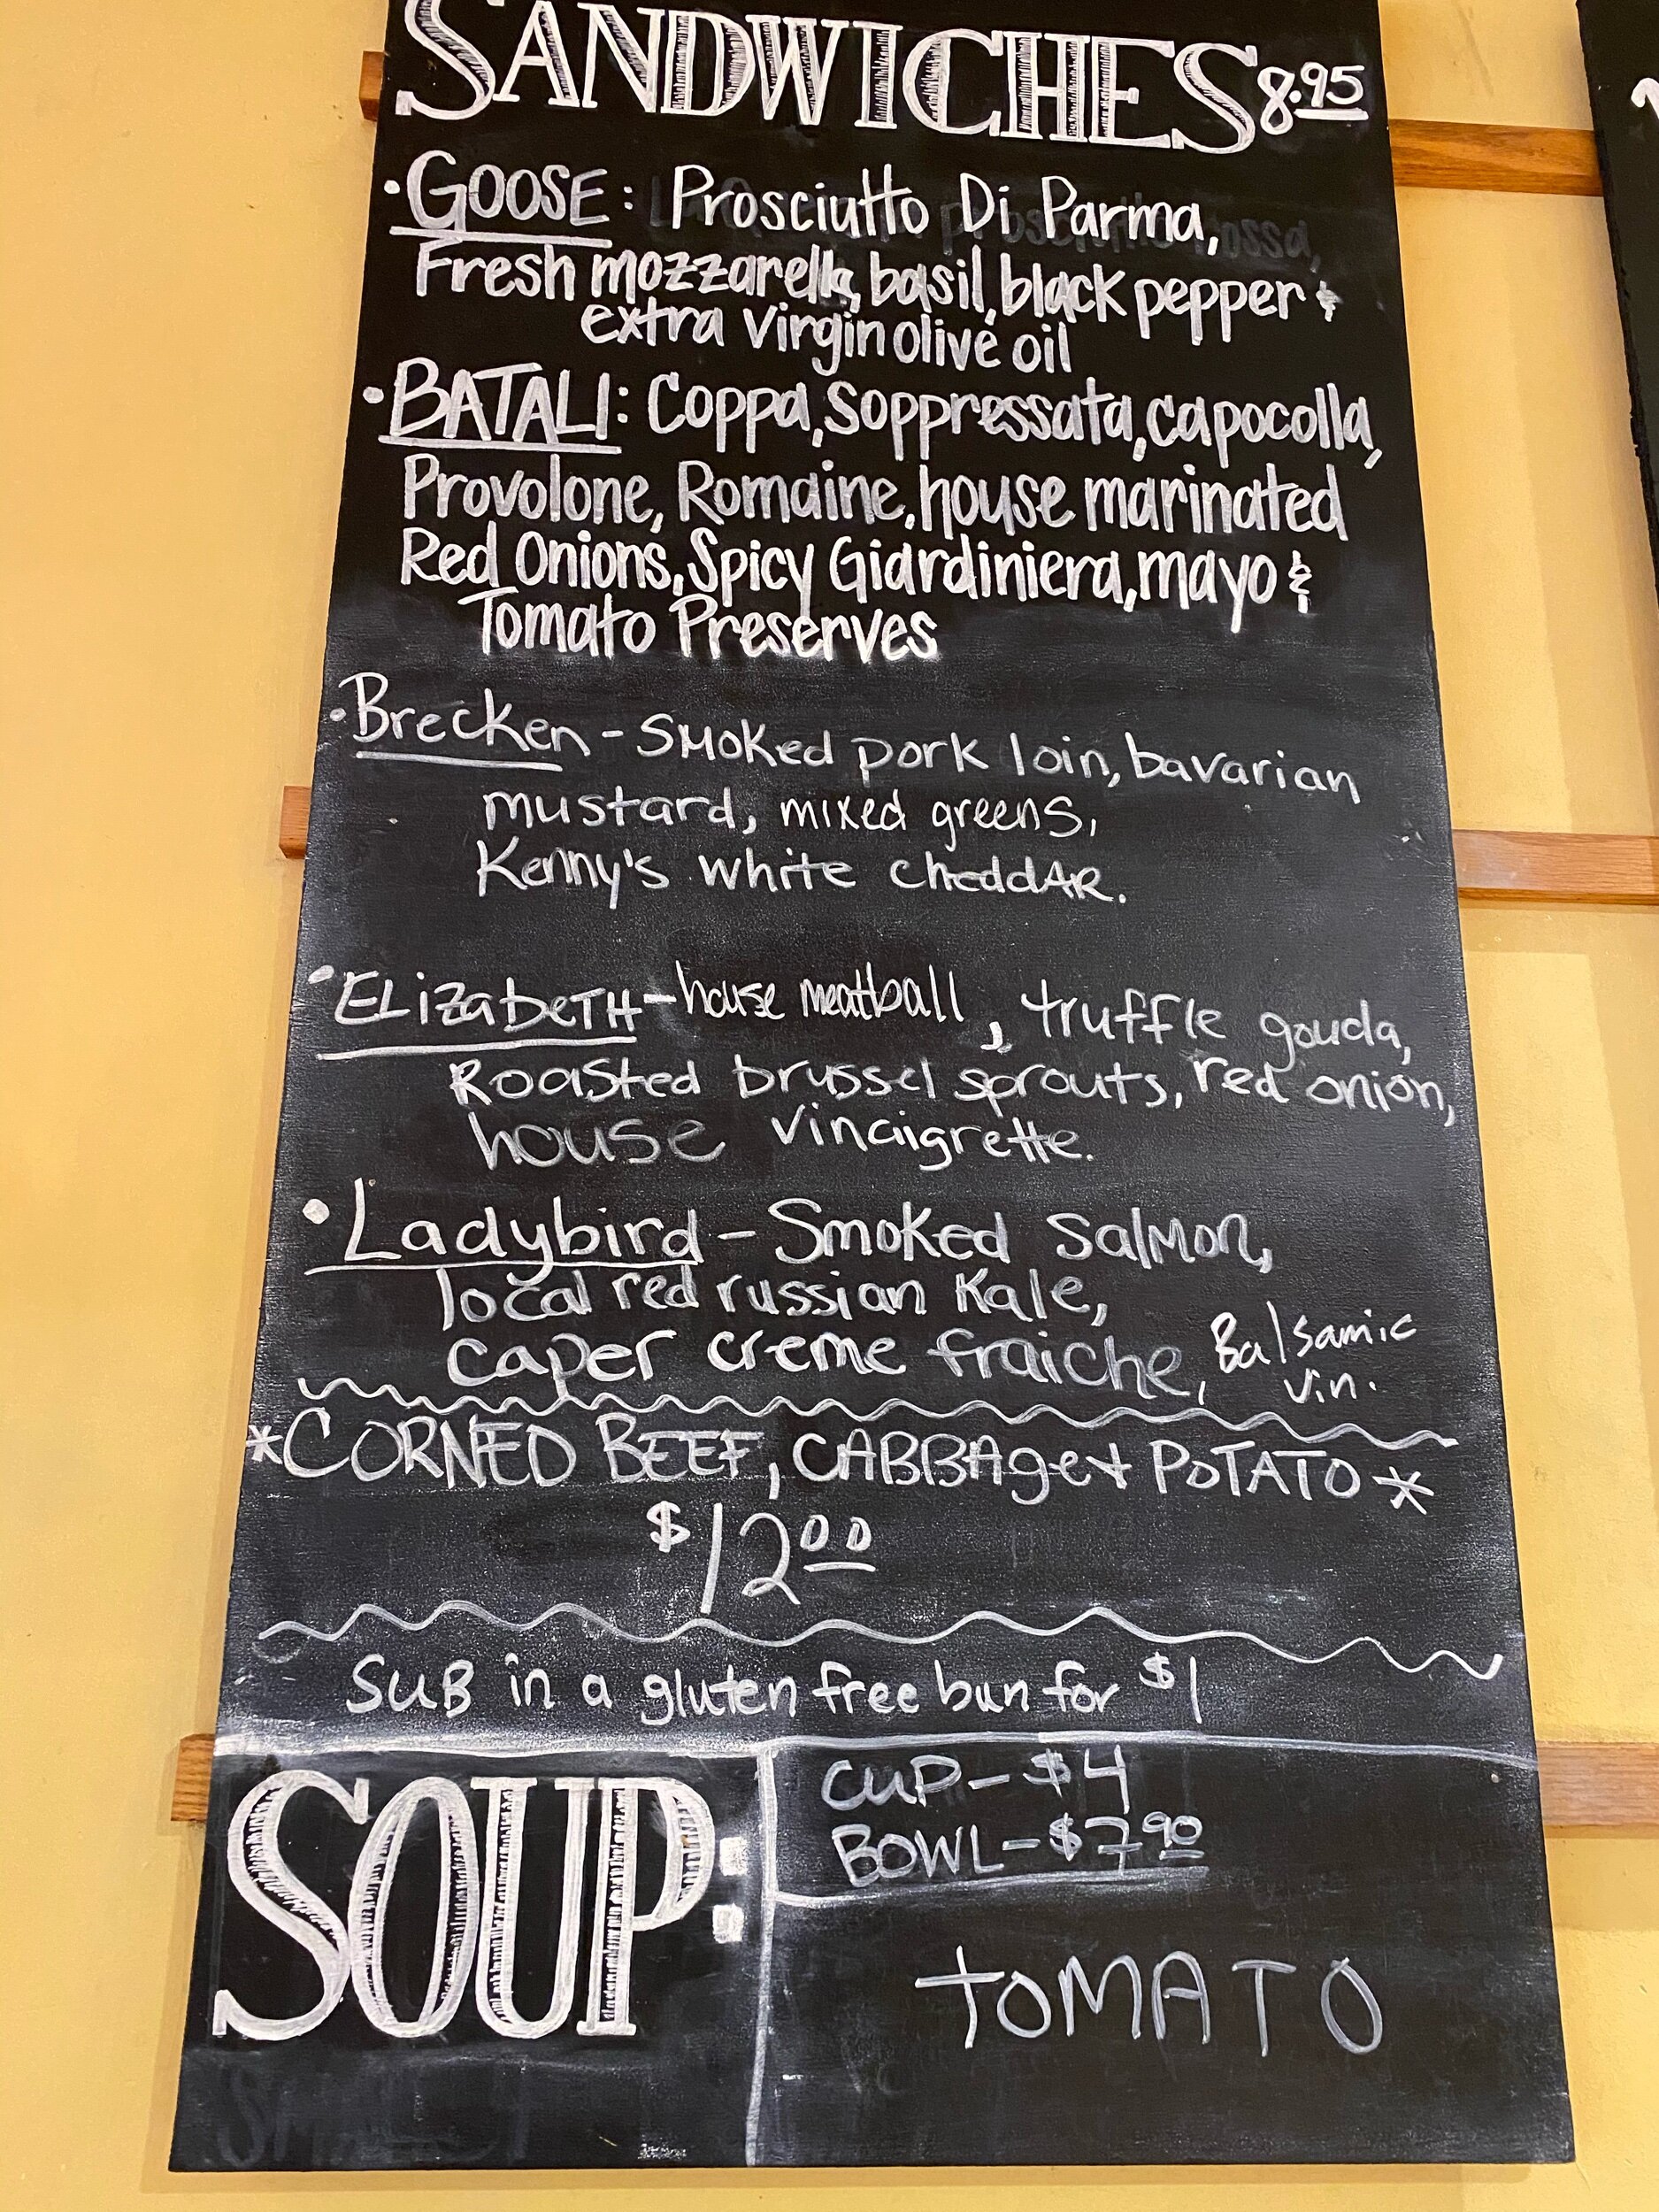 SANDWICHES 8.95
• GOOSE: Prosciutto Di Parma,
Fresh mozzarella, basil, black pepper &
extra virgin olive oil
• BATALI: Coppa, Soppressata, capocolla,
Provolone, Romaine, house marinated
Red Onions, Spicy Giardiniera, mayo &
Tomato Preserves
• Brecken - Smoked pork loin, bavarian
mustard, mixed greens,
Kenny's white cheddAR.
• ELizabeTH - house meatball, truffle gouda,
Roasted brussel sprouts, red onion,
house vinaigrette.
• Ladybird - Smoked Salmon,
local red russian Kale,
caper creme fraiche, Balsamic
vin.
*CORNED BEEF, CABBAge + POTATO*
$12.00
SUB in a gluten free bun for $1
SOUP:
CUP - $4
BOWL - $7.90
tOMATO